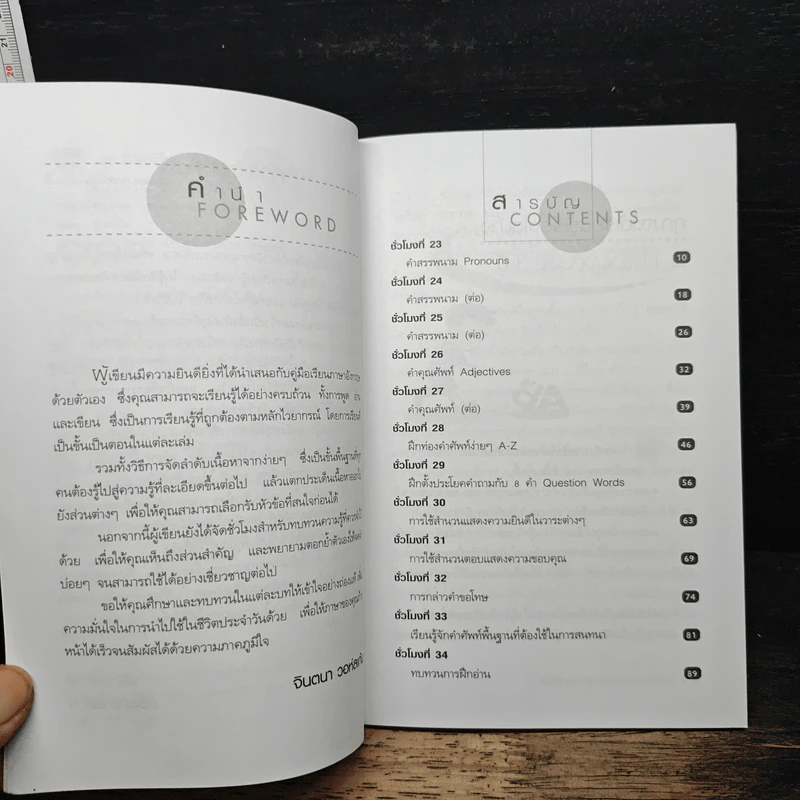 คำนำ
FOREWORD
ผู้เขียนมีความยินดียิ่งที่ได้นำเสนอกับคู่มือเรียนภาษาอังกฤษ
ด้วยตัวเอง ซึ่งคุณสามารถจะเรียนรู้ได้อย่างครบถ้วน ทั้งการพูด อ่าน
และเขียน ซึ่งเป็นการเรียนรู้ที่ถูกต้องตามหลักไวยากรณ์ โดยการเรียนรู้
เป็นขั้นเป็นตอนในแต่ละเล่ม
รวมทั้งวิธีการจัดลำดับเนื้อหาจากง่ายๆ ซึ่งเป็นขั้นพื้นฐานที่ทุก
คนต้องรู้ไปสู่ความรู้ที่ละเอียดขึ้นต่อไป แล้วแตกประเด็นเนื้อหาออกไป
ยังส่วนต่างๆ เพื่อให้คุณสามารถเลือกรับหัวข้อที่สนใจก่อนได้
นอกจากนี้ผู้เขียนยังได้จัดชั่วโมงสำหรับทบทวนความรู้
ด้วย เพื่อให้คุณเห็นถึงส่วนสำคัญ และพยายามตอกย้ำตัวเอง
บ่อยๆ จนสามารถใช้ได้อย่างเชี่ยวชาญต่อไป
ขอให้คุณศึกษาและทบทวนในแต่ละบทให้เข้าใจอย่างถ่องแท้
ความมั่นใจในการนำไปใช้ในชีวิตประจำวันด้วย เพื่อให้ภาษาของคุณ
หน้าได้เร็วจนสัมผัสได้ด้วยความภาคภูมิใจ
จินตนา
สารบัญ
CONTENTS
ชั่วโมงที่ 23
คำสรรพนาม Pronouns 10
ชั่วโมงที่ 24
คำสรรพนาม (ต่อ) 18
ชั่วโมงที่ 25
คำสรรพนาม (ต่อ) 26
ชั่วโมงที่ 26
คำคุณศัพท์ Adjectives 32
ชั่วโมงที่ 27
คำคุณศัพท์ (ต่อ) 39
ชั่วโมงที่ 28
ฝึกท่องคำศัพท์ง่ายๆ A-Z 46
ชั่วโมงที่ 29
ฝึกตั้งประโยคคำถามกับ 8 คำ Question Words 56
ชั่วโมงที่ 30
การใช้สำนวนแสดงความยินดีในวาระต่างๆ 63
ชั่วโมงที่ 31
การใช้สำนวนตอบแสดงความขอบคุณ 69
ชั่วโมงที่ 32
การกล่าวคำขอโทษ 74
ชั่วโมงที่ 33
เรียนรู้จักคำศัพท์พื้นฐานที่ต้องใช้ในการสนทนา 81
ชั่วโมงที่ 34
ทบทวนการฝึกอ่าน 89
20
21